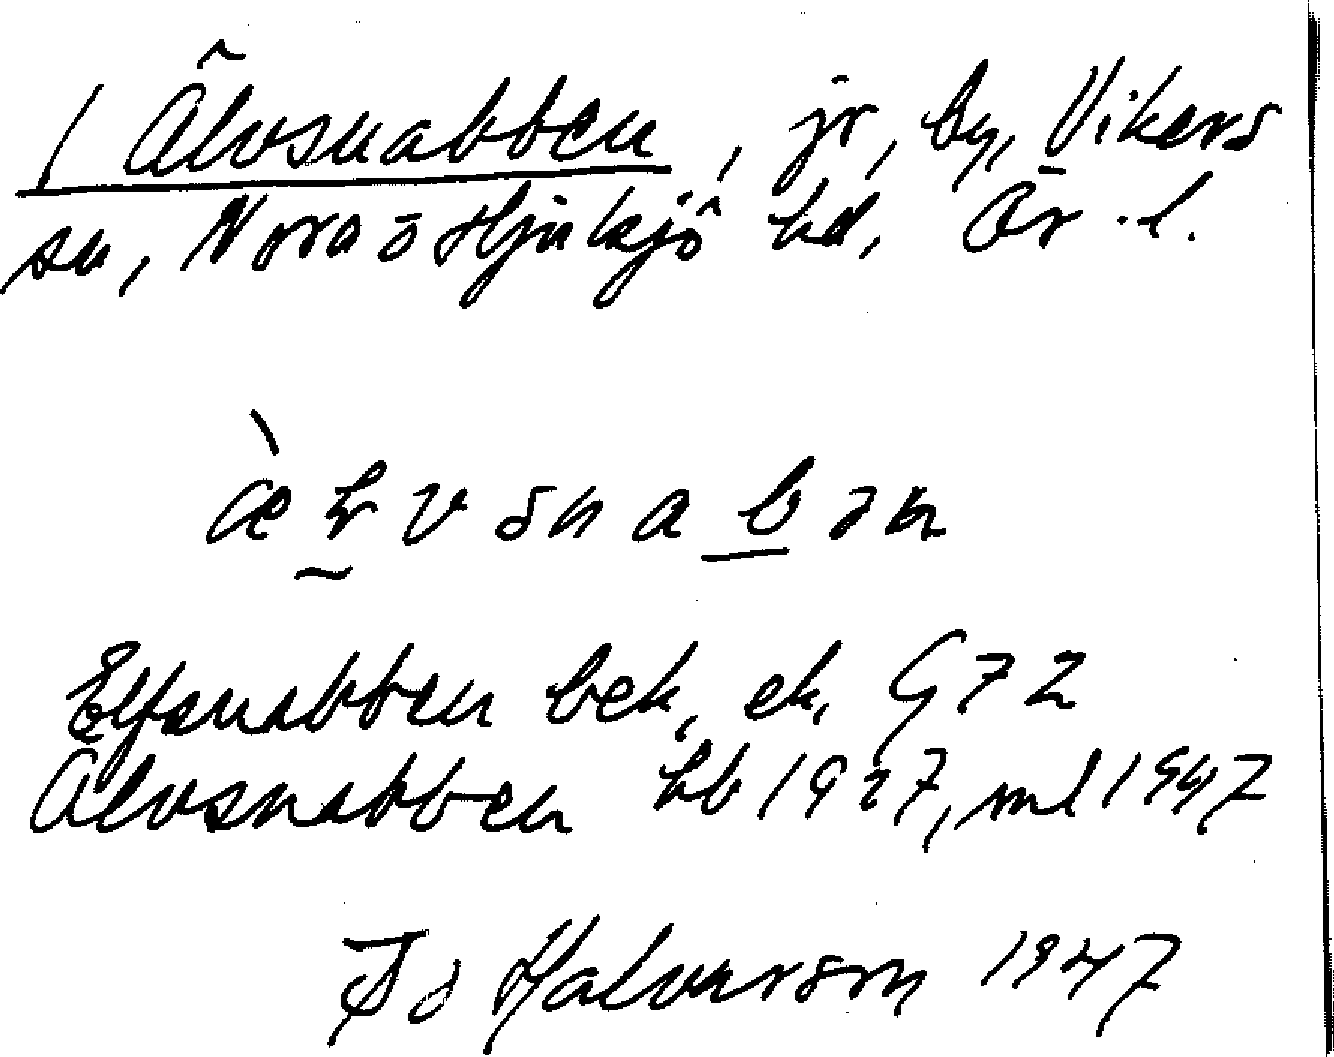 / Älvsnabben, jr, by, Vikers
sn, Nora ō Hjulsjö hd, Ör. l.
æ̀ḷvsnab̲ən
Elfsnabben bek, ek, G 72
Älvsnabben hb 1927, ml 1947
Halvarson 1947